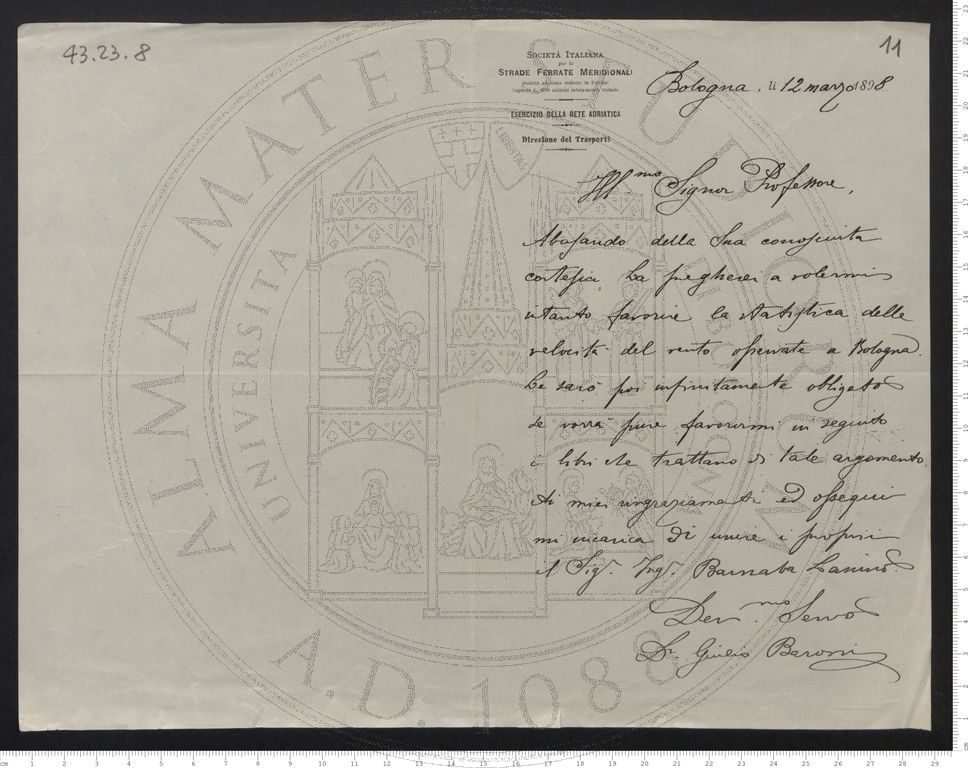 43.23.8
11
SOCIETÀ ITALIANA
per le
STRADE FERRATE MERIDIONALI
Società anonima sedente in Firenze
Capitale L. 260 milioni interamente versato
ESERCIZIO DELLA RETE ADRIATICA
Direzione dei Trasporti
Bologna, li 12 marzo 1898
Ill.mo Signor Professore,
Abusando della Sua conosciuta
cortesia, La pregherei a volermi
intanto favorire la statistica delle
velocità del vento osservate a Bologna.
Le sarò poi infinitamente obligato
se vorrà pure favorirmi in seguito
i libri che trattano di tale argomento.
Ai miei ringraziamenti ed ossequi
mi incarica di unire i propri
il Sig.r Ing.r Barnaba Lanino.
Dev.mo Servo
Dr. Giulio Baroni
ALMA MATER STUDIORUM
UNIVERSITÀ
A.D. 1088